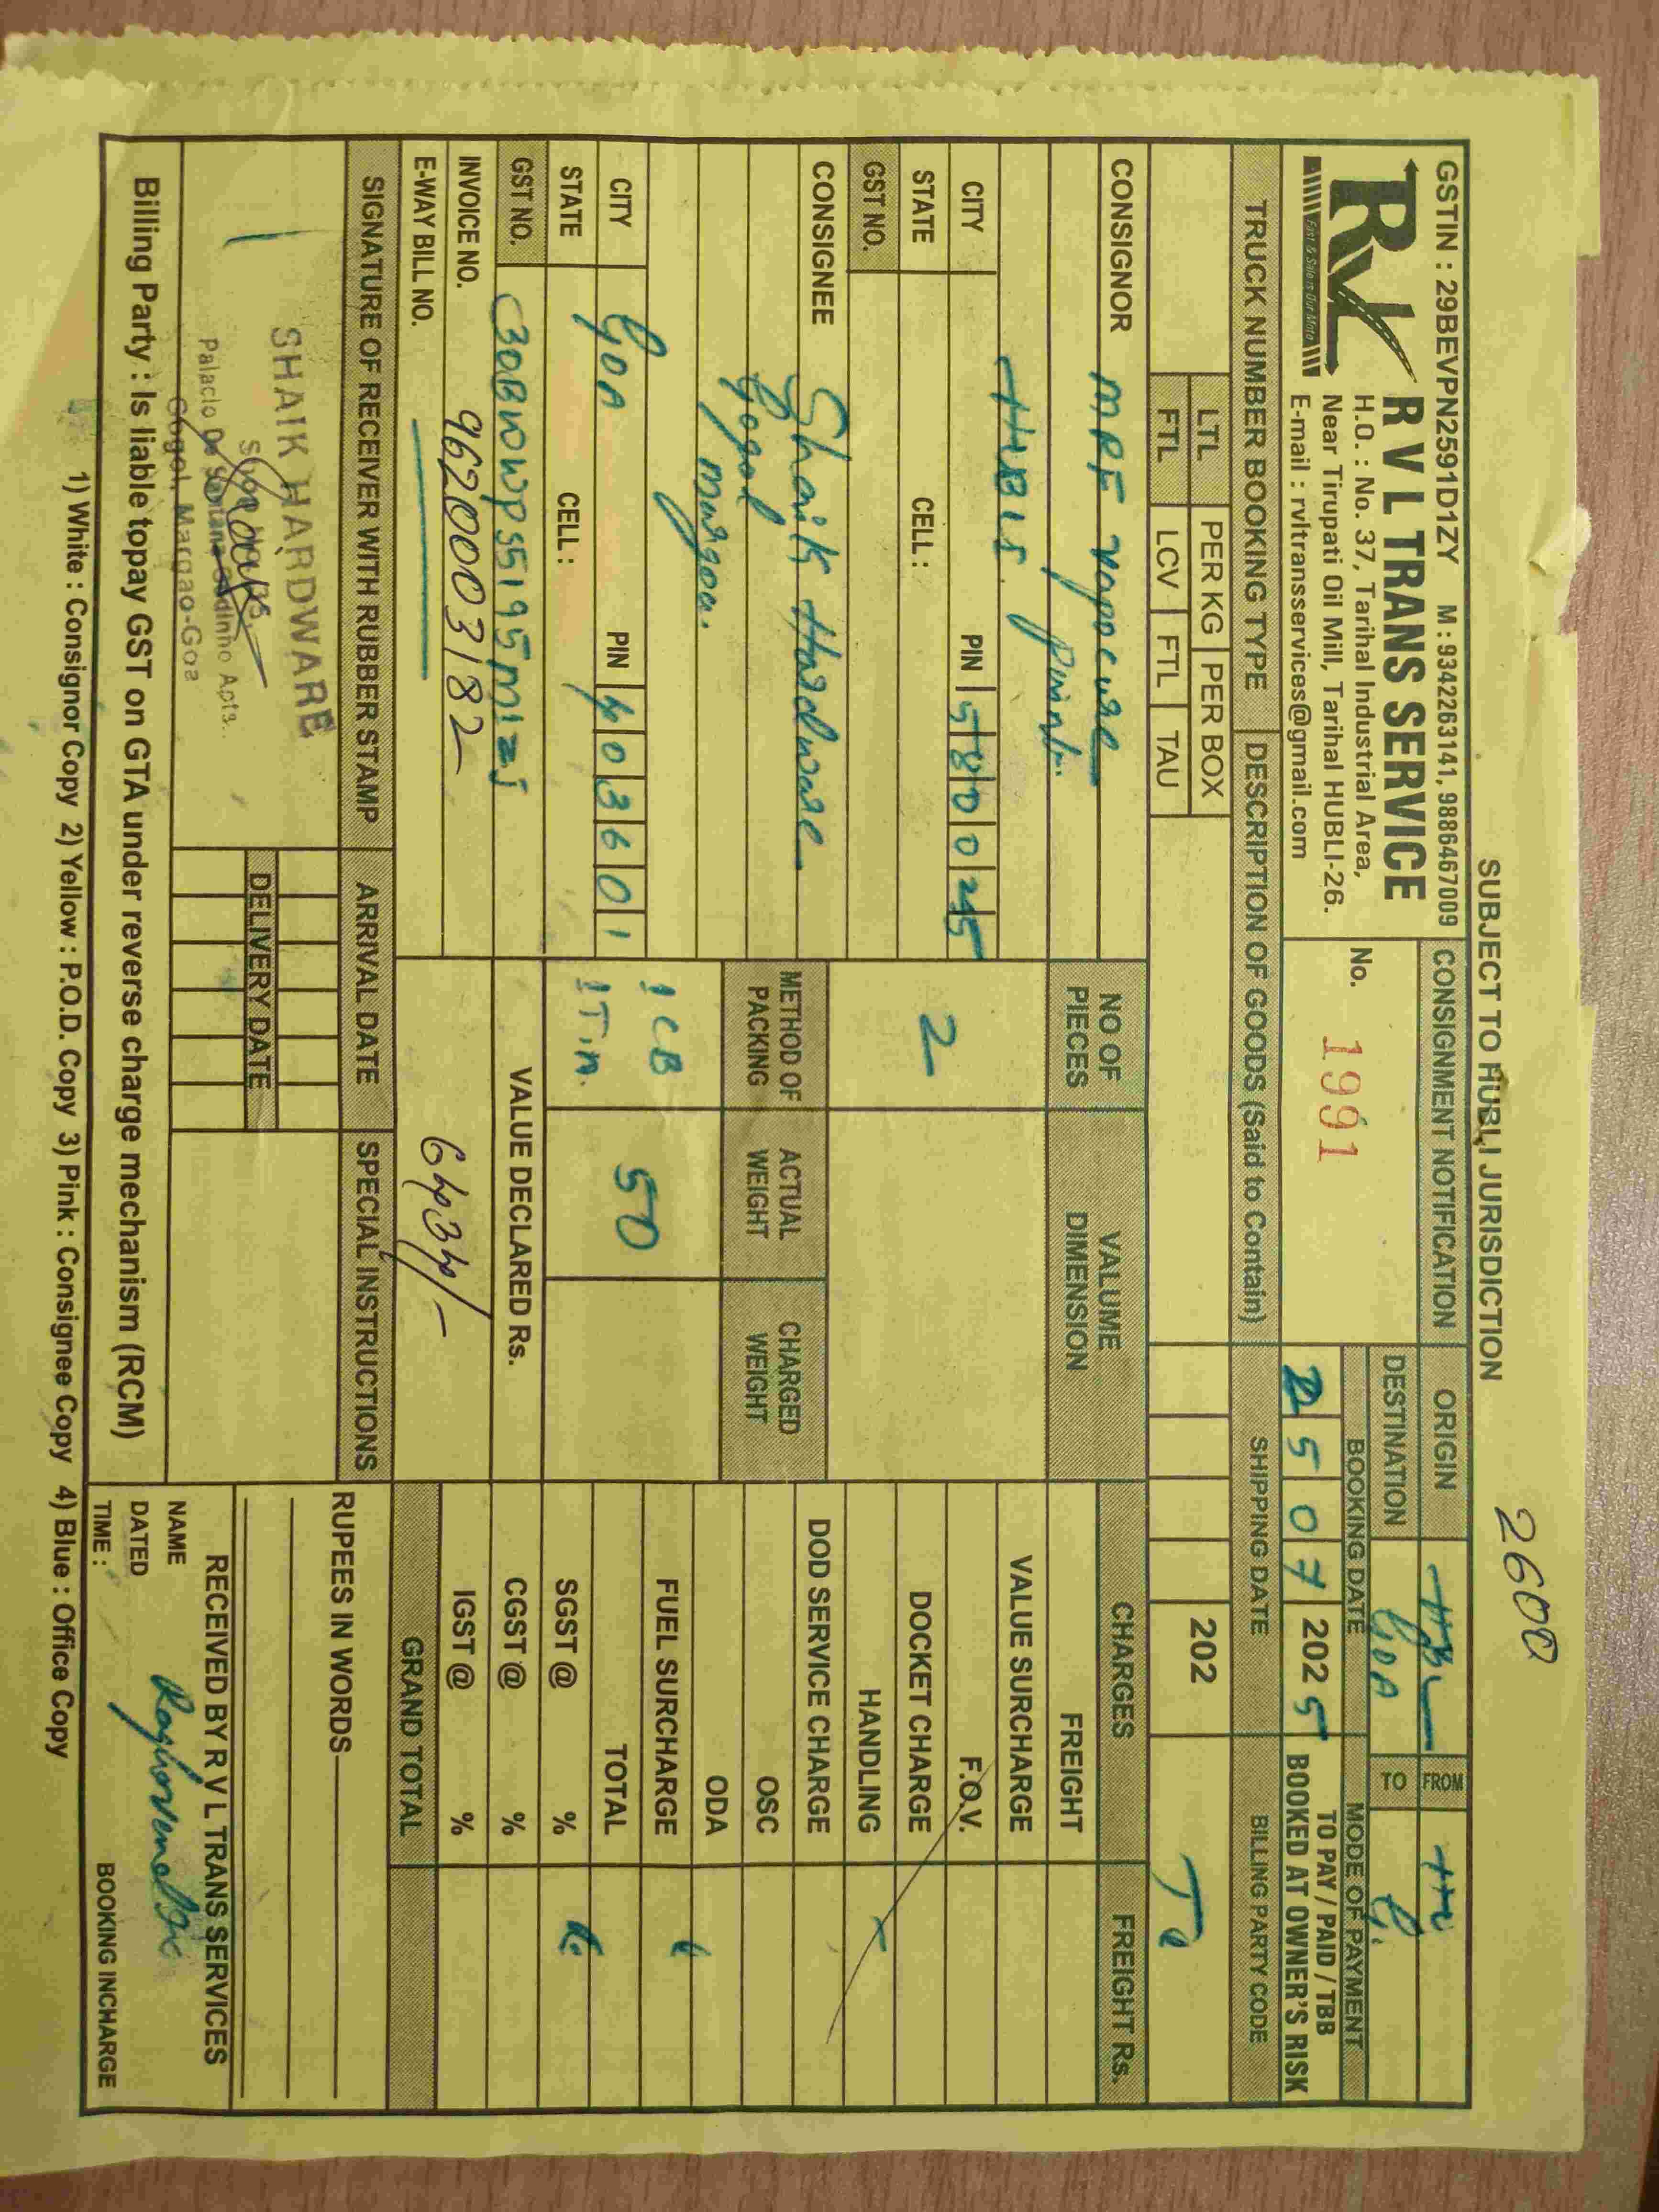 SUBJECT TO HUBLI JURISDICTION
2600
GSTIN : 29BEVPN2591D1ZY M : 9342263141, 9886467009
RVL
Fast & Safe is Our Moto
R V L TRANS SERVICE
H.O. : No. 37, Tarihal Industrial Area,
Near Tirupati Oil Mill, Tarihal HUBLI-26.
E-mail : rvltransservices@gmail.com
CONSIGNMENT NOTIFICATION
No. 1991
ORIGIN HBL FROM
DESTINATION GOA TO
BOOKING DATE MODE OF PAYMENT
2 5 0 7 202 5 TO PAY / PAID / TBB
BOOKED AT OWNER'S RISK
TRUCK NUMBER BOOKING TYPE DESCRIPTION OF GOODS (Said to Contain) SHIPPING DATE BILLING PARTY CODE
LTL PER KG PER BOX 202
FTL LCV FTL TAU
CONSIGNOR MRF Vapocure
Paints
HBLI
CITY PIN 5 8 0 0 2 5
STATE CELL :
GST NO.
CONSIGNEE Shaik Hardware
Gogol
Margoa.
CITY GOA PIN 4 0 3 6 0 1
STATE CELL :
GST NO.
INVOICE NO. 9620003182
E-WAY BILL NO.
NO OF PIECES VALUME DIMENSION
2
METHOD OF PACKING ACTUAL WEIGHT CHARGED WEIGHT
1 CB
1 Tin. 50
VALUE DECLARED Rs.
CHARGES FREIGHT Rs.
FREIGHT
VALUE SURCHARGE
F.O.V.
DOCKET CHARGE
HANDLING
DOD SERVICE CHARGE
OSC
ODA
FUEL SURCHARGE
TOTAL
SGST @ %
CGST @ %
IGST @ %
GRAND TOTAL
SIGNATURE OF RECEIVER WITH RUBBER STAMP ARRIVAL DATE SPECIAL INSTRUCTIONS
SHAIK HARDWARE
Palacio De Santana Apts.
Gogol, Margao-Goa
DELIVERY DATE
RUPEES IN WORDS
RECEIVED BY R V L TRANS SERVICES
NAME
DATED
TIME : BOOKING INCHARGE
Billing Party : Is liable topay GST on GTA under reverse charge mechanism (RCM)
1) White : Consignor Copy 2) Yellow : P.O.D. Copy 3) Pink : Consignee Copy 4) Blue : Office Copy